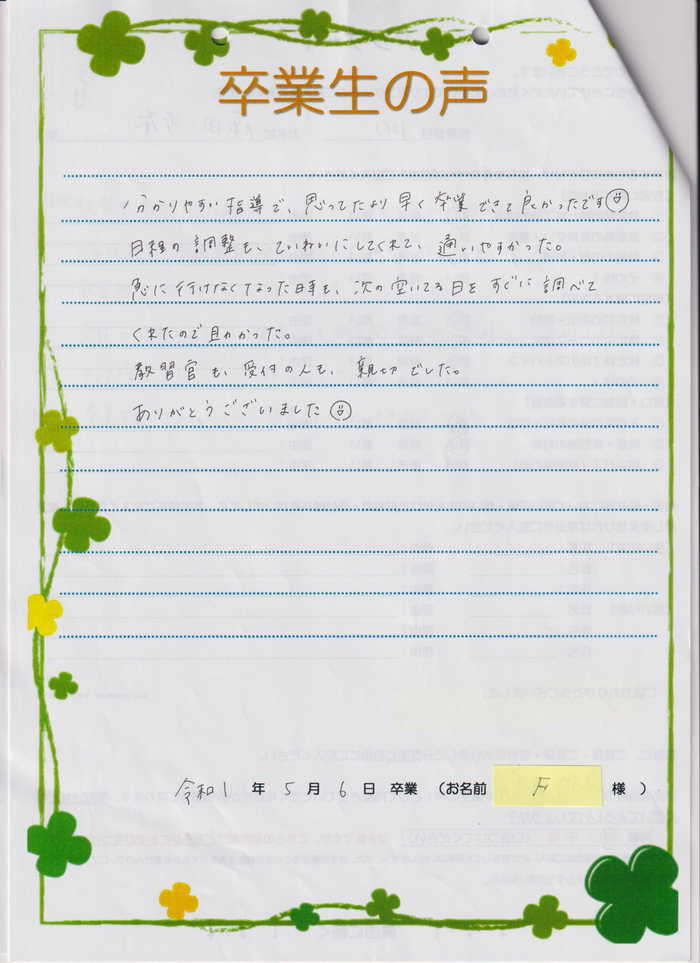 卒業生の声
分かりやすい指導で、思ってたより早く卒業できて良かったです
日程の調整も、ていねいにしてくれて、通いやすかった。
急に行けなくなった時も、次の空いてる日をすぐに調べて
くれたので助かった。
教習官も、受付の人も、親切でした。
ありがとうございました
令和1年5月6日 卒業 （お名前 F 様）